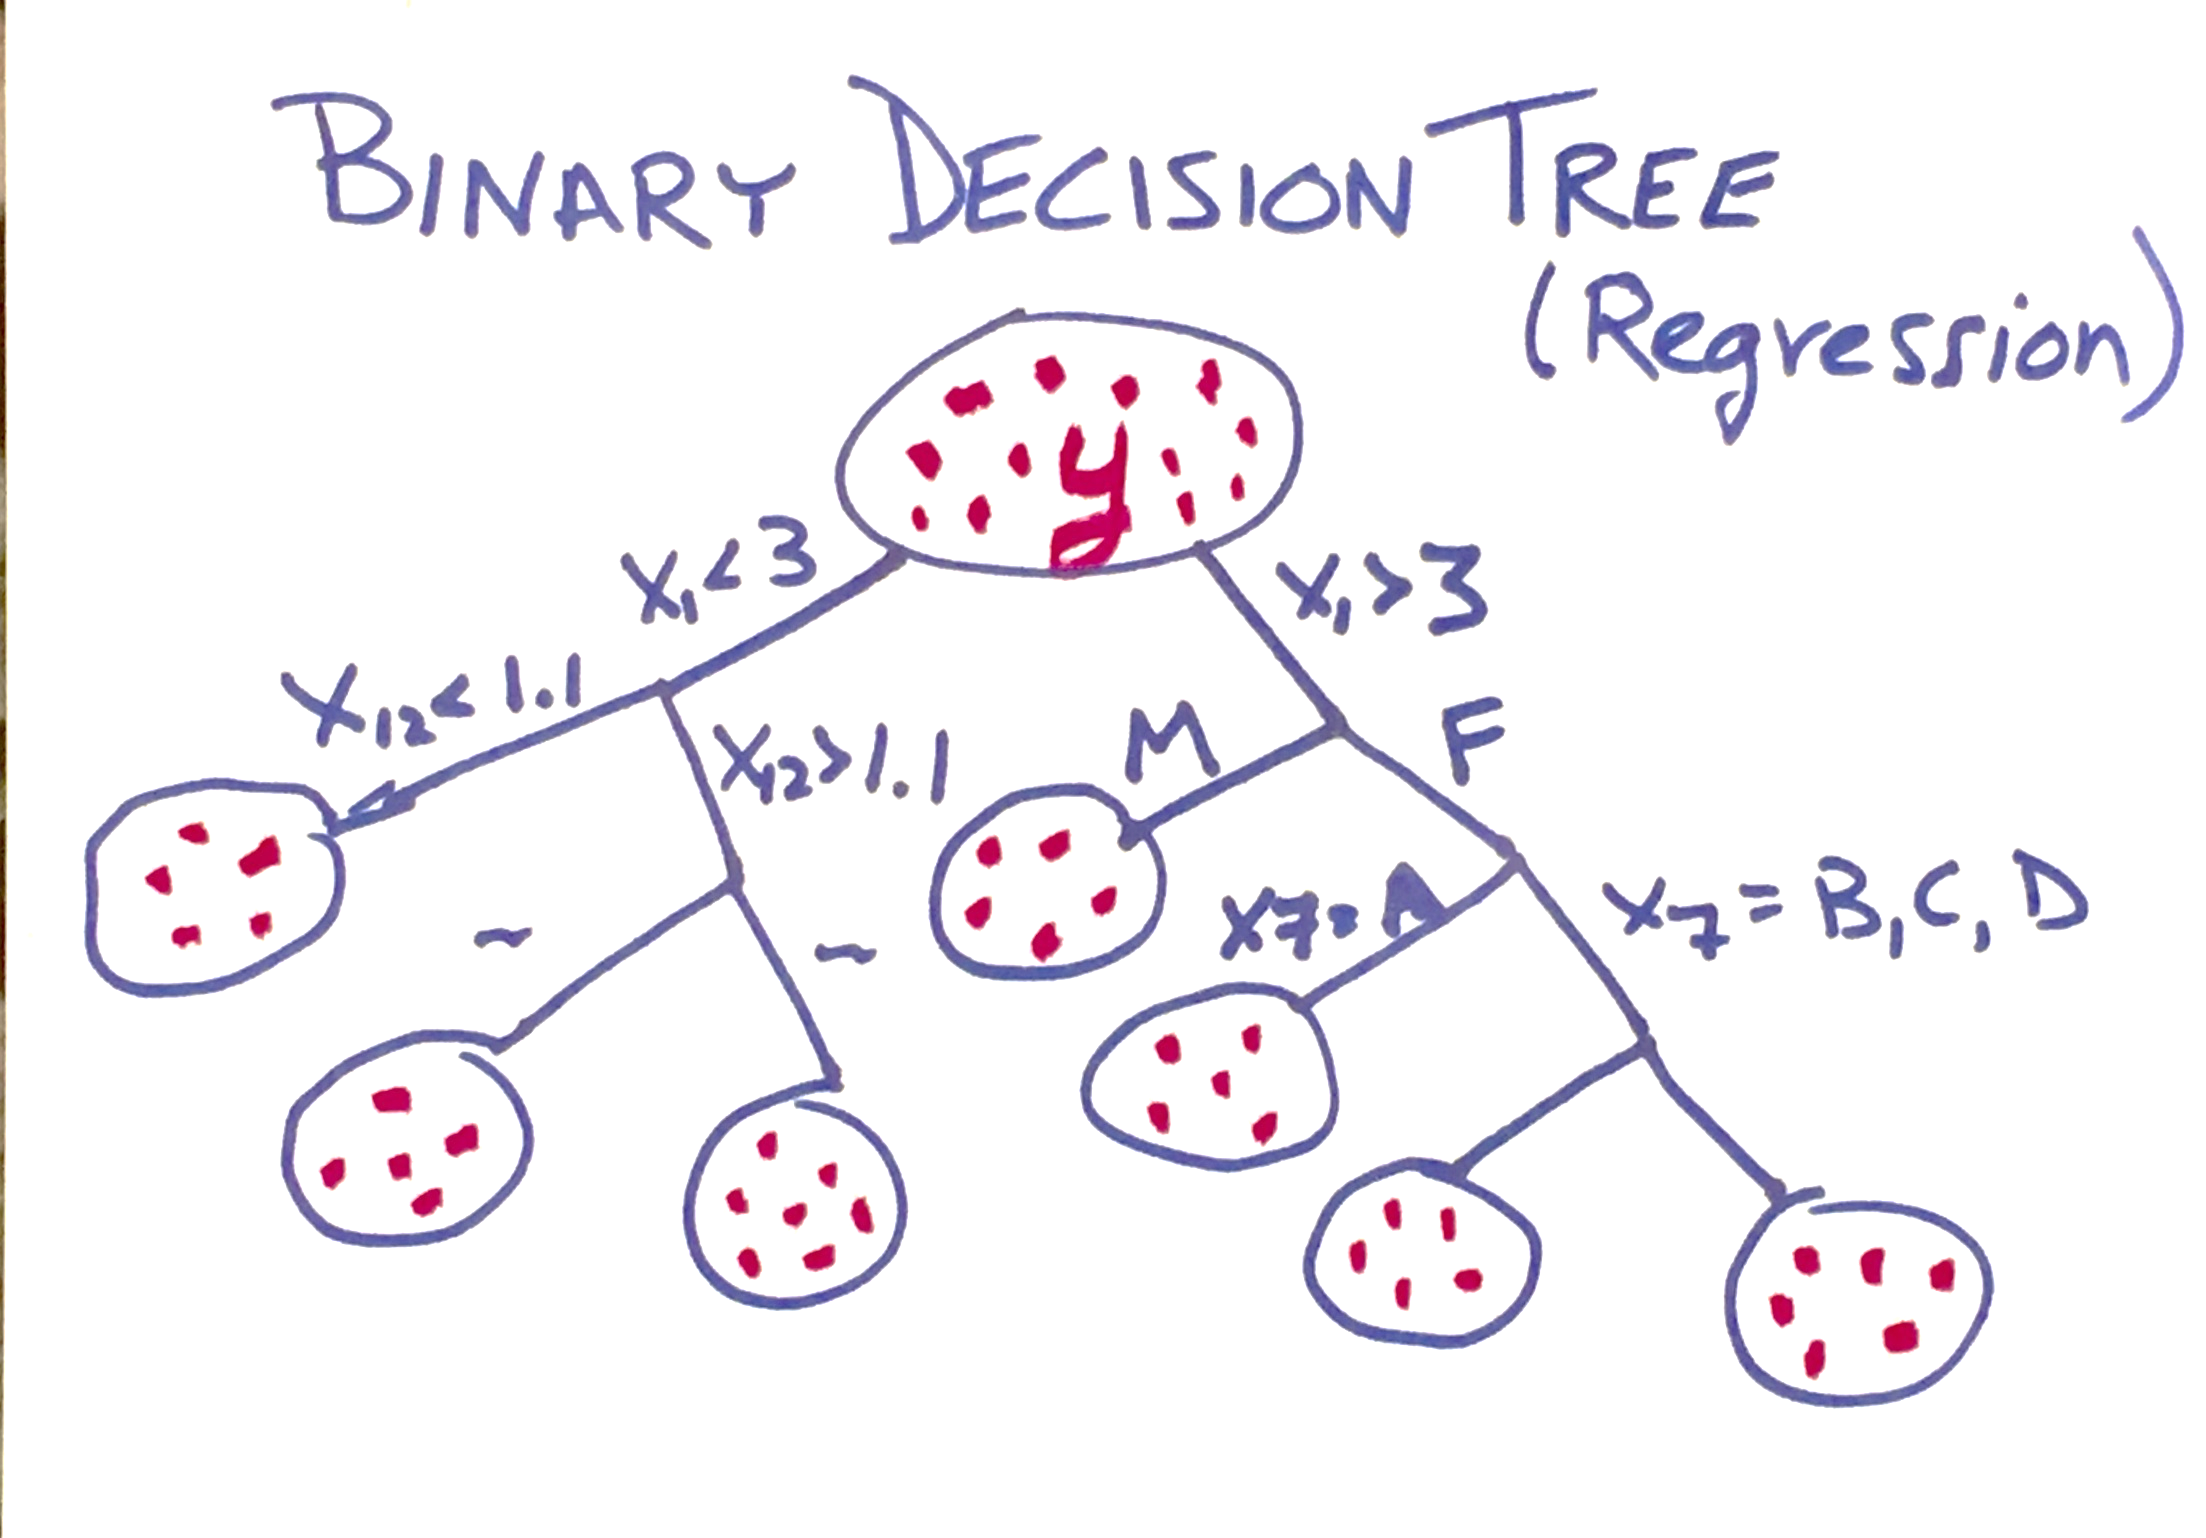 BINARY DECISION TREE
(Regression)
y
X₁<3
X₁>3
X₁₂<1.1
X₁₂>1.1
M
F
X7=A
X₇=B,C,D
~
~